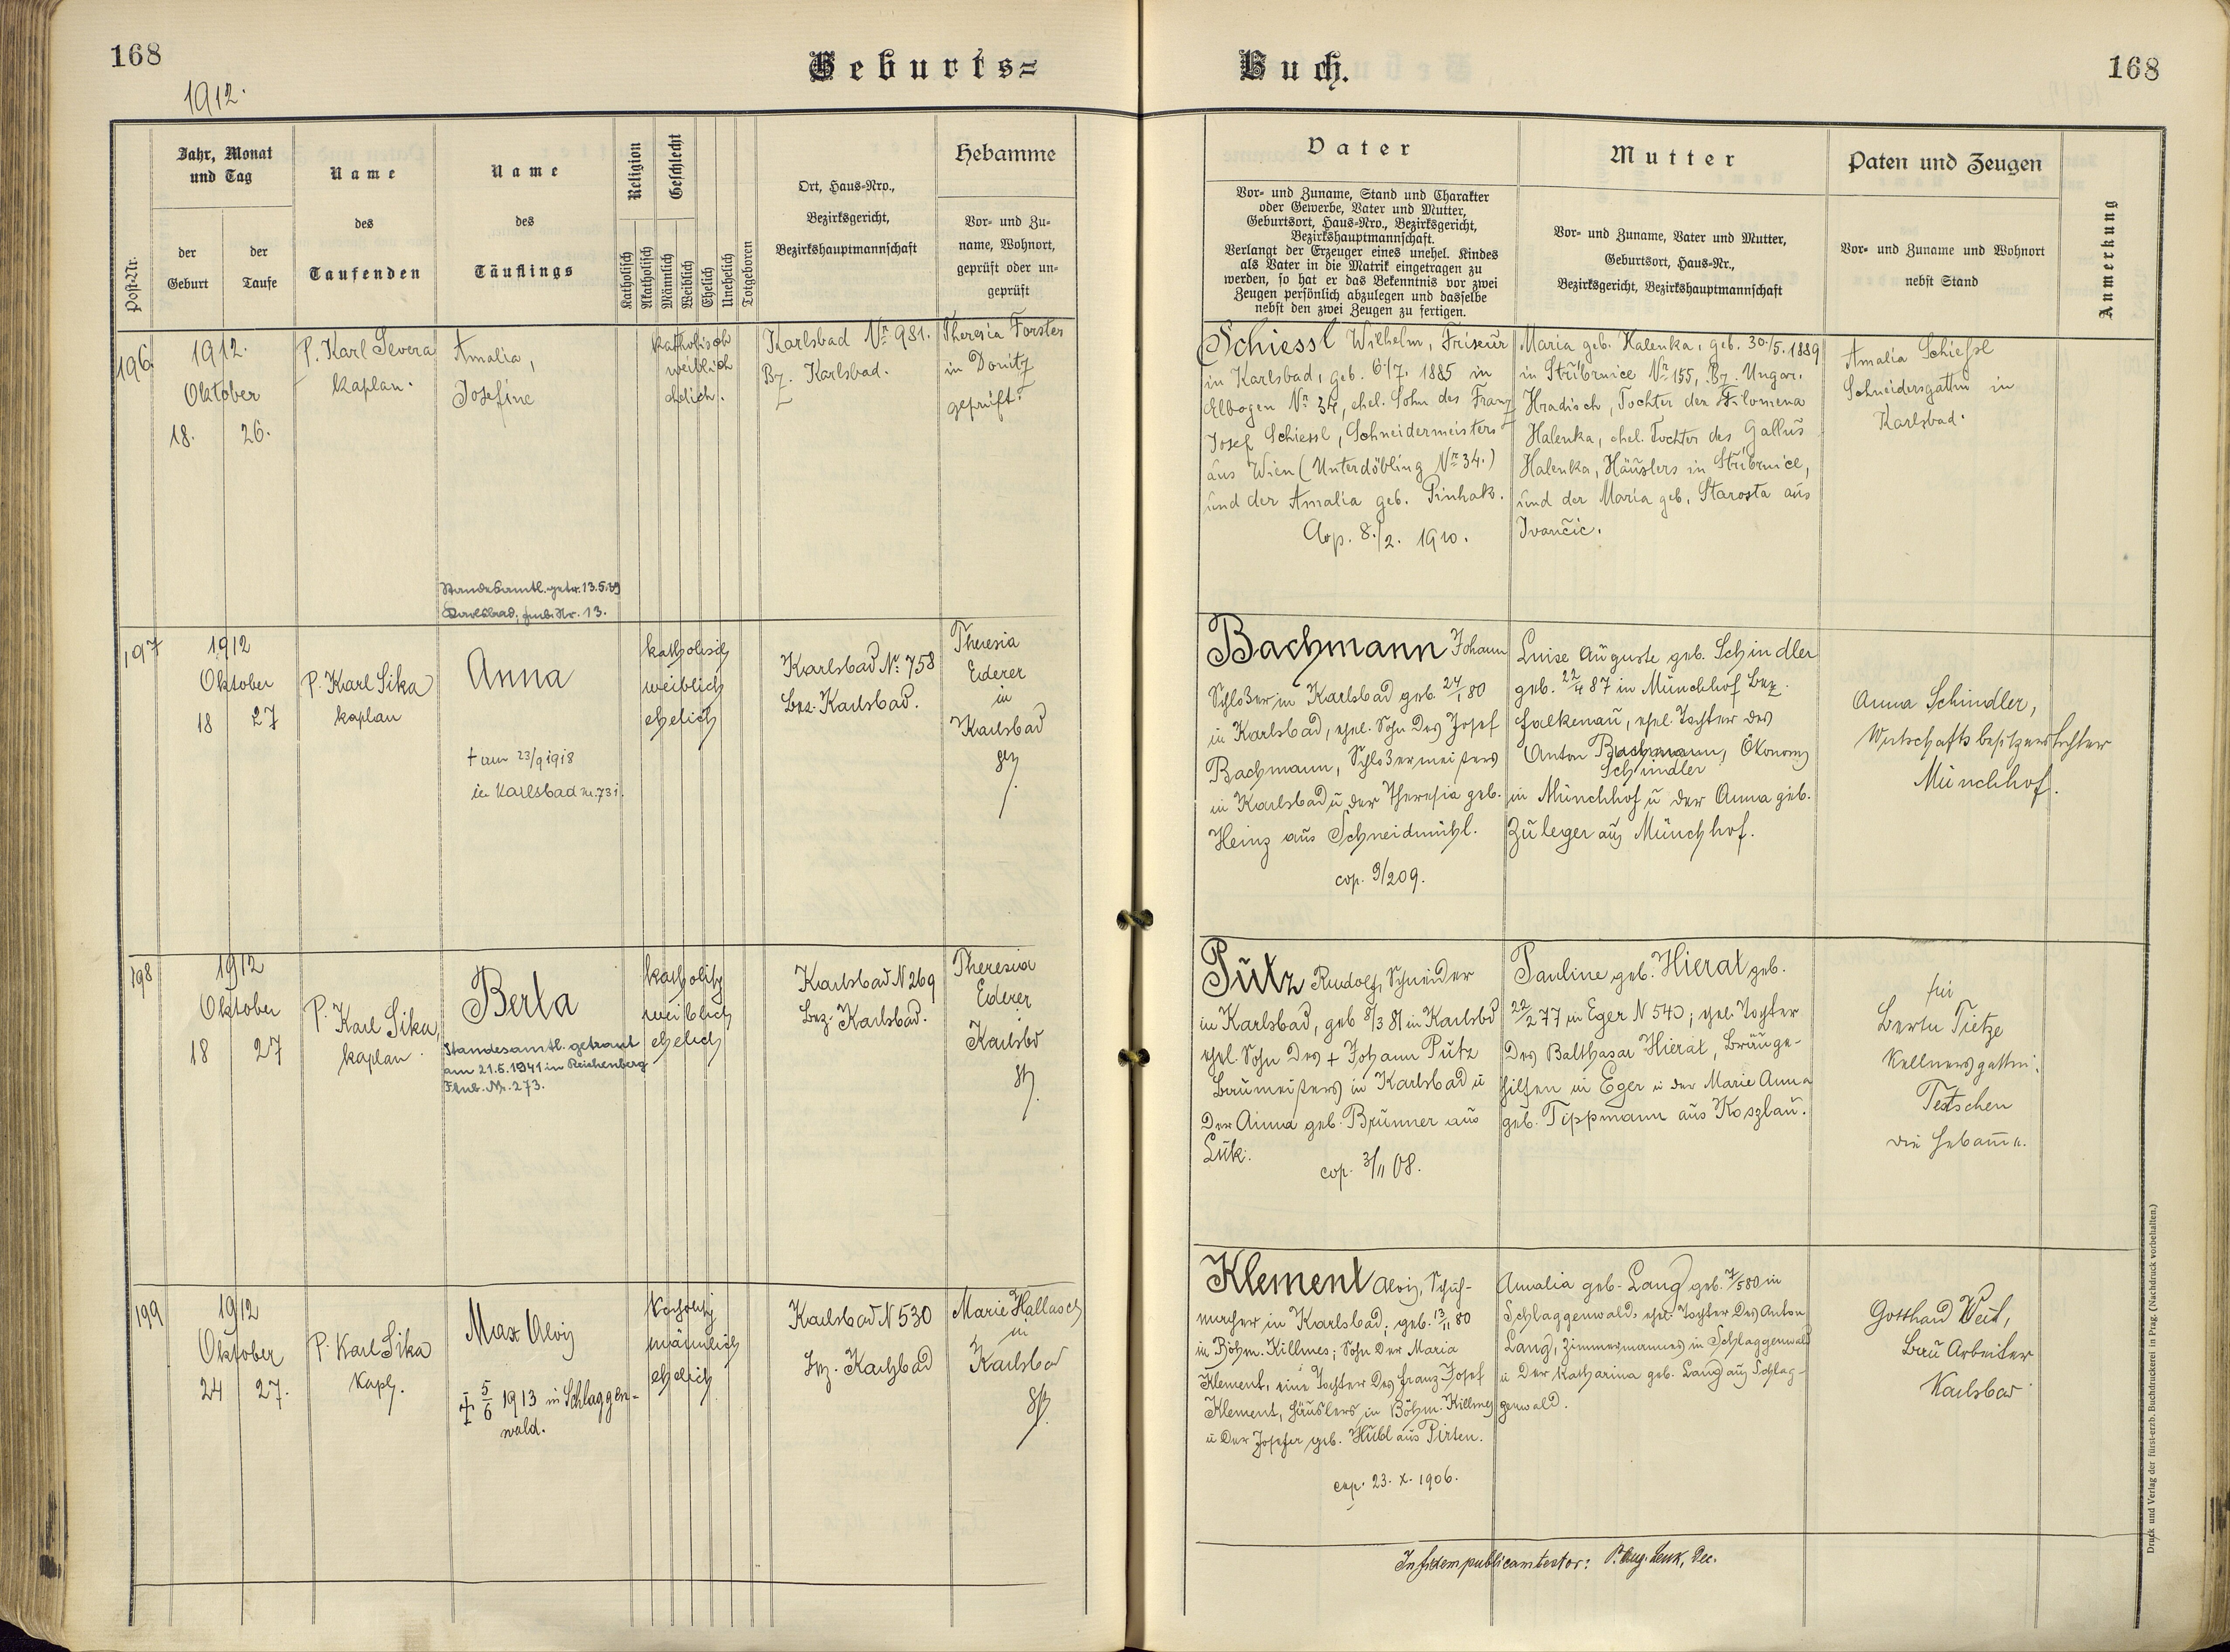 168
Geburts=
Buch.
168
1912.
Post-Nr.
Jahr, Monat
und Tag
der
Geburt
der
Taufe
Name
des
Taufenden
Name
des
Täuflings
Religion
Geschlecht
Katholisch
Akatholisch
Männlich
Weiblich
Ehelich
Unehelich
Totgeboren
Ort, Haus=Nro.,
Bezirksgericht,
Bezirkshauptmannschaft
Hebamme
Vor= und Zu=
name, Wohnort,
geprüft oder un=
geprüft
Vater
Vor= und Zuname, Stand und Charakter
oder Gewerbe, Vater und Mutter,
Geburtsort, Haus=Nro., Bezirksgericht,
Bezirkshauptmannschaft.
Verlangt der Erzeuger eines unehel. Kindes
als Vater in die Matrik eingetragen zu
werden, so hat er das Bekenntnis vor zwei
Zeugen persönlich abzulegen und dasselbe
nebst den zwei Zeugen zu fertigen.
Mutter
Vor= und Zuname, Vater und Mutter,
Geburtsort, Haus=Nr.,
Bezirksgericht, Bezirkshauptmannschaft
Paten und Zeugen
Vor= und Zuname und Wohnort
nebst Stand
Anmerkung
196.
1912.
Oktober
18. 26.
P. Karl Severa
kaplan.
Amalia,
Josefine
Standesamtl. getr. 13.5.39
Karlsbad, Fmb. Nr. 13.
katholisch
weiblich
ehelich.
Karlsbad Nr. 981.
Bz. Karlsbad.
Theresia Forster
in Donitz
geprüft.
Schiessl Wilhelm, Friseur
in Karlsbad, geb. 6/7. 1885 in
Elbogen Nr. 34, ehel. Sohn des Franz
Josef Schiessl, Schneidermeisters
aus Wien (Unterdöbling Nr. 34.)
und der Amalia geb. Pinhak.
Cop. 8./2. 1910.
Maria geb. Halenka, geb. 30./5. 1889
in Stříbrnice Nr. 155, Bz. Ungar.
Hradisch, Tochter der Filomena
Halenka, ehel. Tochter des Gallus
Halenka, Häuslers in Stříbrnice,
und der Maria geb. Starosta aus
Ivančic.
Amalia Schießl
Schneidersgattin in
Karlsbad.
197
1912
Oktober
18 27
P. Karl Sika
kaplan
Anna
† am 23/9 1918
in Karlsbad nr. 731.
katholisch
weiblich
ehelich
Karlsbad Nr. 758
Bez. Karlsbad.
Theresia
Ederer
in
Karlsbad
Bachmann Johann
Schloßer in Karlsbad geb. 24/1 80
in Karlsbad, ehel. Sohn des Josef
Bachmann, Schloßermeisters
in Karlsbad u der Theresia geb.
Heinz aus Schneidmühl.
cop. 9/2 09.
Luise Auguste geb. Schindler
geb. 22/4 87 in Münchhof Bez.
Falkenau, ehel. Tochter des
Anton Bachmann, Ökonom
Schindler
in Münchhof u der Anna geb.
Zuleger aus Münchhof.
Anna Schindler,
Wirtschaftsbesitzerstochter
Münchhof.
198
1912
Oktober
18 27
P. Karl Sika,
kaplan.
Berta
Standesamtl. getraut
am 21.5.1941 in Reichenberg
Fmb. Nr. 273.
katholisch
weiblich
ehelich
Karlsbad N 269
Bez. Karlsbad.
Theresia
Ederer
Karlsbd
Pütz Rudolf, Schneider
in Karlsbad, geb 8/3 81 in Karlsbd
ehel. Sohn des † Johann Pütz
Baumeisters in Karlsbad u
der Anna geb. Brunner aus
Luk.
cop. 3/11 08.
Pauline geb. Hierat geb.
22/2 77 in Eger N 540; ehel. Tochter
des Balthasar Hierat, Bräuge-
hilfen in Eger u der Marie Anna
geb. Tippmann aus Koszlau.
für
Berta Tietze
Kellnersgattin
Tetschen
die Hebamme.
199
1912
Oktober
24 27.
P. Karl Sika
Kapl.
Max Alois
† 5/6 1913 in Schlaggen-
wald.
Katholisch
männlich
ehelich
Karlsbad N 530
Bz. Karlsbad
Marie Hallasch
in
Karlsbad
Klement Alois, Schuh-
macher in Karlsbad; geb. 13/11 80
in Böhm. Killmes; Sohn der Maria
Klement, eine Tochter des Franz Josef
Klement, Häuslers in Böhm. Killmes
u der Josefa geb. Hübl aus Pirten.
cop. 23. X. 1906.
Amalia geb. Lang geb. 7/5 80 in
Schlaggenwald, ehel. Tochter des Anton
Lang, Zimmermannes in Schlaggenwald
u der Katharina geb. Lang aus Schlag-
genwald.
Gotthard Weil,
Bau Arbeiter
Karlsbad
In fidem publicam testor: P. Aug. Lenk, Dec.
Druck und Verlag der fürst-erzb. Buchdruckerei in Prag. (Nachdruck vorbehalten.)